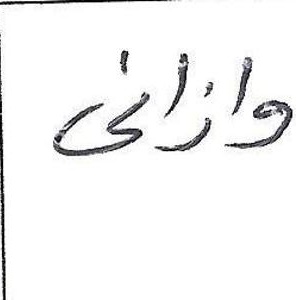 وازانى